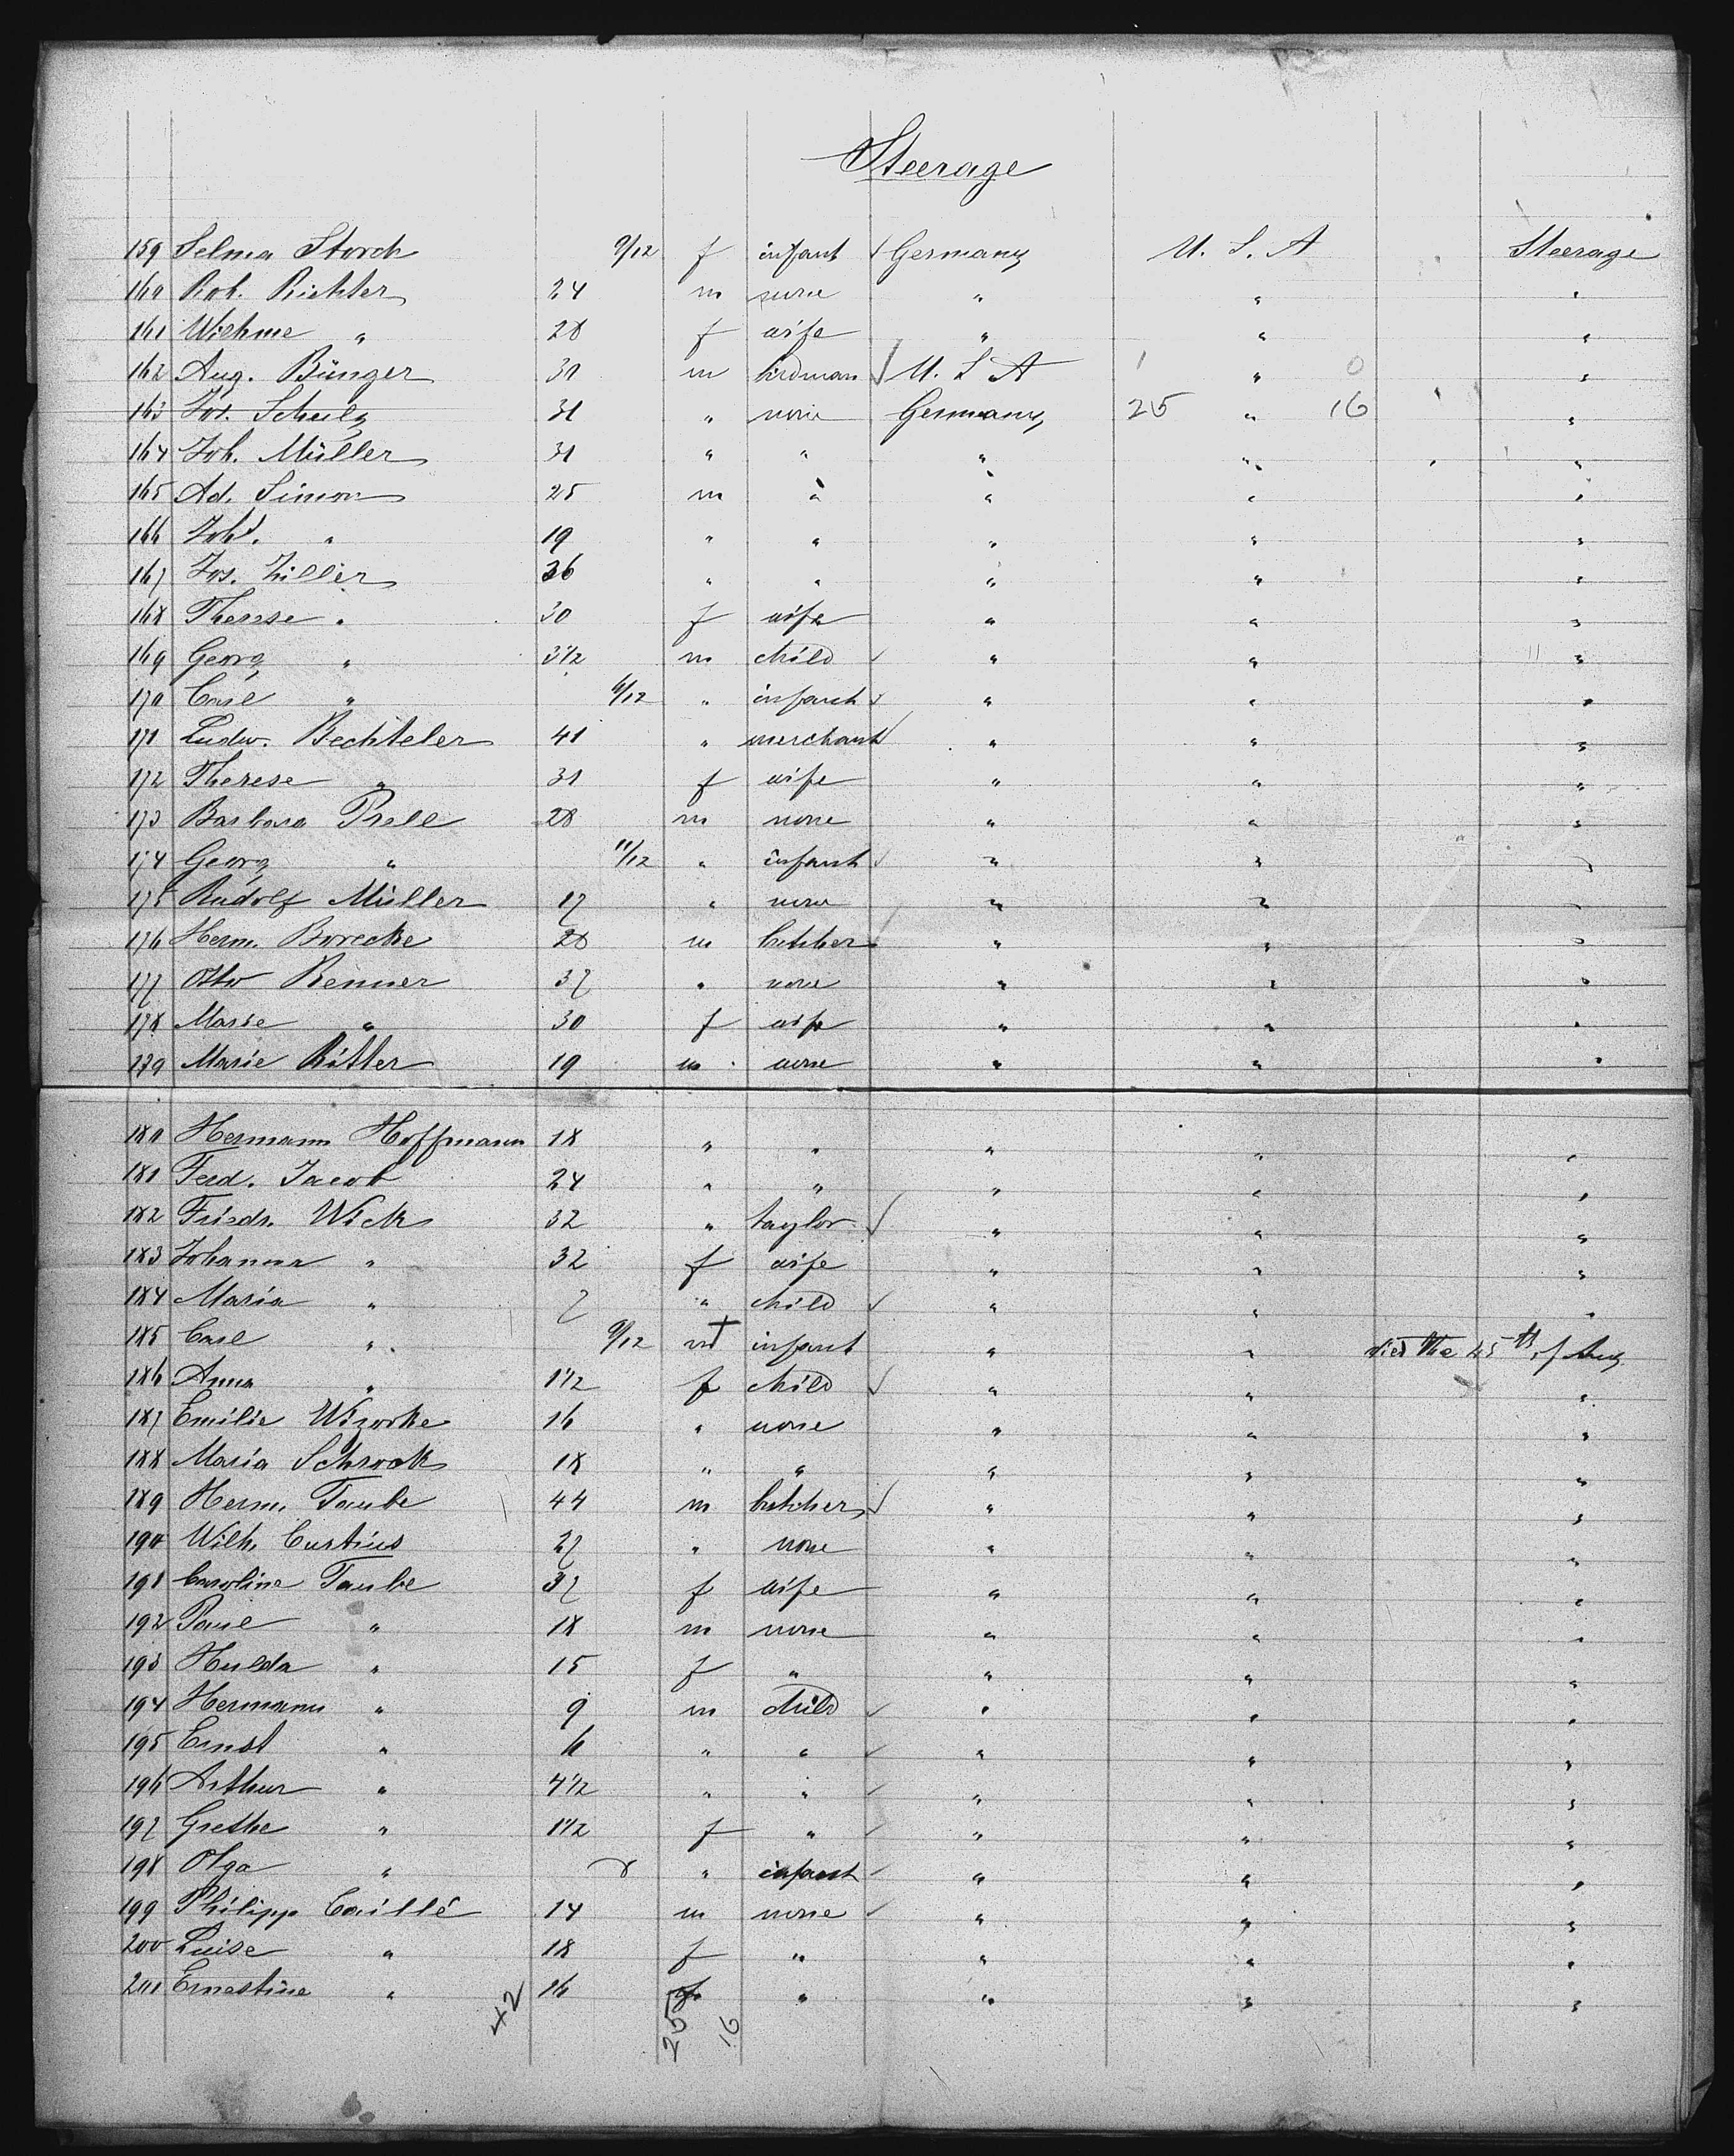 Steerage
159 Selma Storch 9/12 f infant √ Germany U. S. A Steerage
160 Rob. Richter 24 m none " " "
161 " 28 f wife " " "
162 Aug. Bünger 30 m birdman √ U. S. A 1 " 0 "
163 Jos. Schulz 31 " none Germany 25 " 16 "
164 Joh. Müller 31 " " " " "
165 Ad. Simon 25 m " " " "
166 Joh. " 19 " " " " "
167 Jos. Ziller 36 " " " " "
168 Therese " 30 f wife " " "
169 Georg " 3 1/2 m child √ " " "
170 Carl " 6/12 " infant √ " " "
171 Ludw. Bechteler 41 " merchant √ " " "
172 Therese " 31 f wife " " "
173 Barbara Prell 28 m none " " "
174 Georg " 11/12 " infant √ " " "
175 Rudolf Müller 17 " none " " "
176 Herm. Borecke 28 m butcher √ " " "
177 Otto Renner 37 " none " " "
178 Marie " 30 f wife " " "
179 Marie Ritter 19 m none " " "
180 Hermann Hoffmann 18 " " " " "
181 Ferd. Jacob 24 " " " " "
182 Friedr. Wick 32 " taylor √ " " "
183 Johanna " 32 f wife " " "
184 Maria " 7 " child √ " " "
185 Carl " 9/12 m † infant " " died the 15th of Aug
186 Anna " 1 1/2 f child √ " " "
187 Emilie Wizorke 16 " none " " "
188 Maria Schrock 18 " " " " "
189 Herm. Taube 44 m butcher √ " " "
190 Wilh. Curtius 27 " none " " "
191 Caroline Taube 37 f wife " " "
192 Paul " 18 m none " " "
193 Hulda " 15 f " " " "
194 Hermann " 9 m child √ " " "
195 Ernst " 6 " " √ " " "
196 Arthur " 4 1/2 " " √ " " "
197 Grethe " 1 1/2 f " √ " " "
198 Olga " " infant √ " " "
199 Philipp Caillé 14 m none √ " " "
200 Luise " 18 f " " " "
201 Ernestine " 16 f " " " "
42 25 16